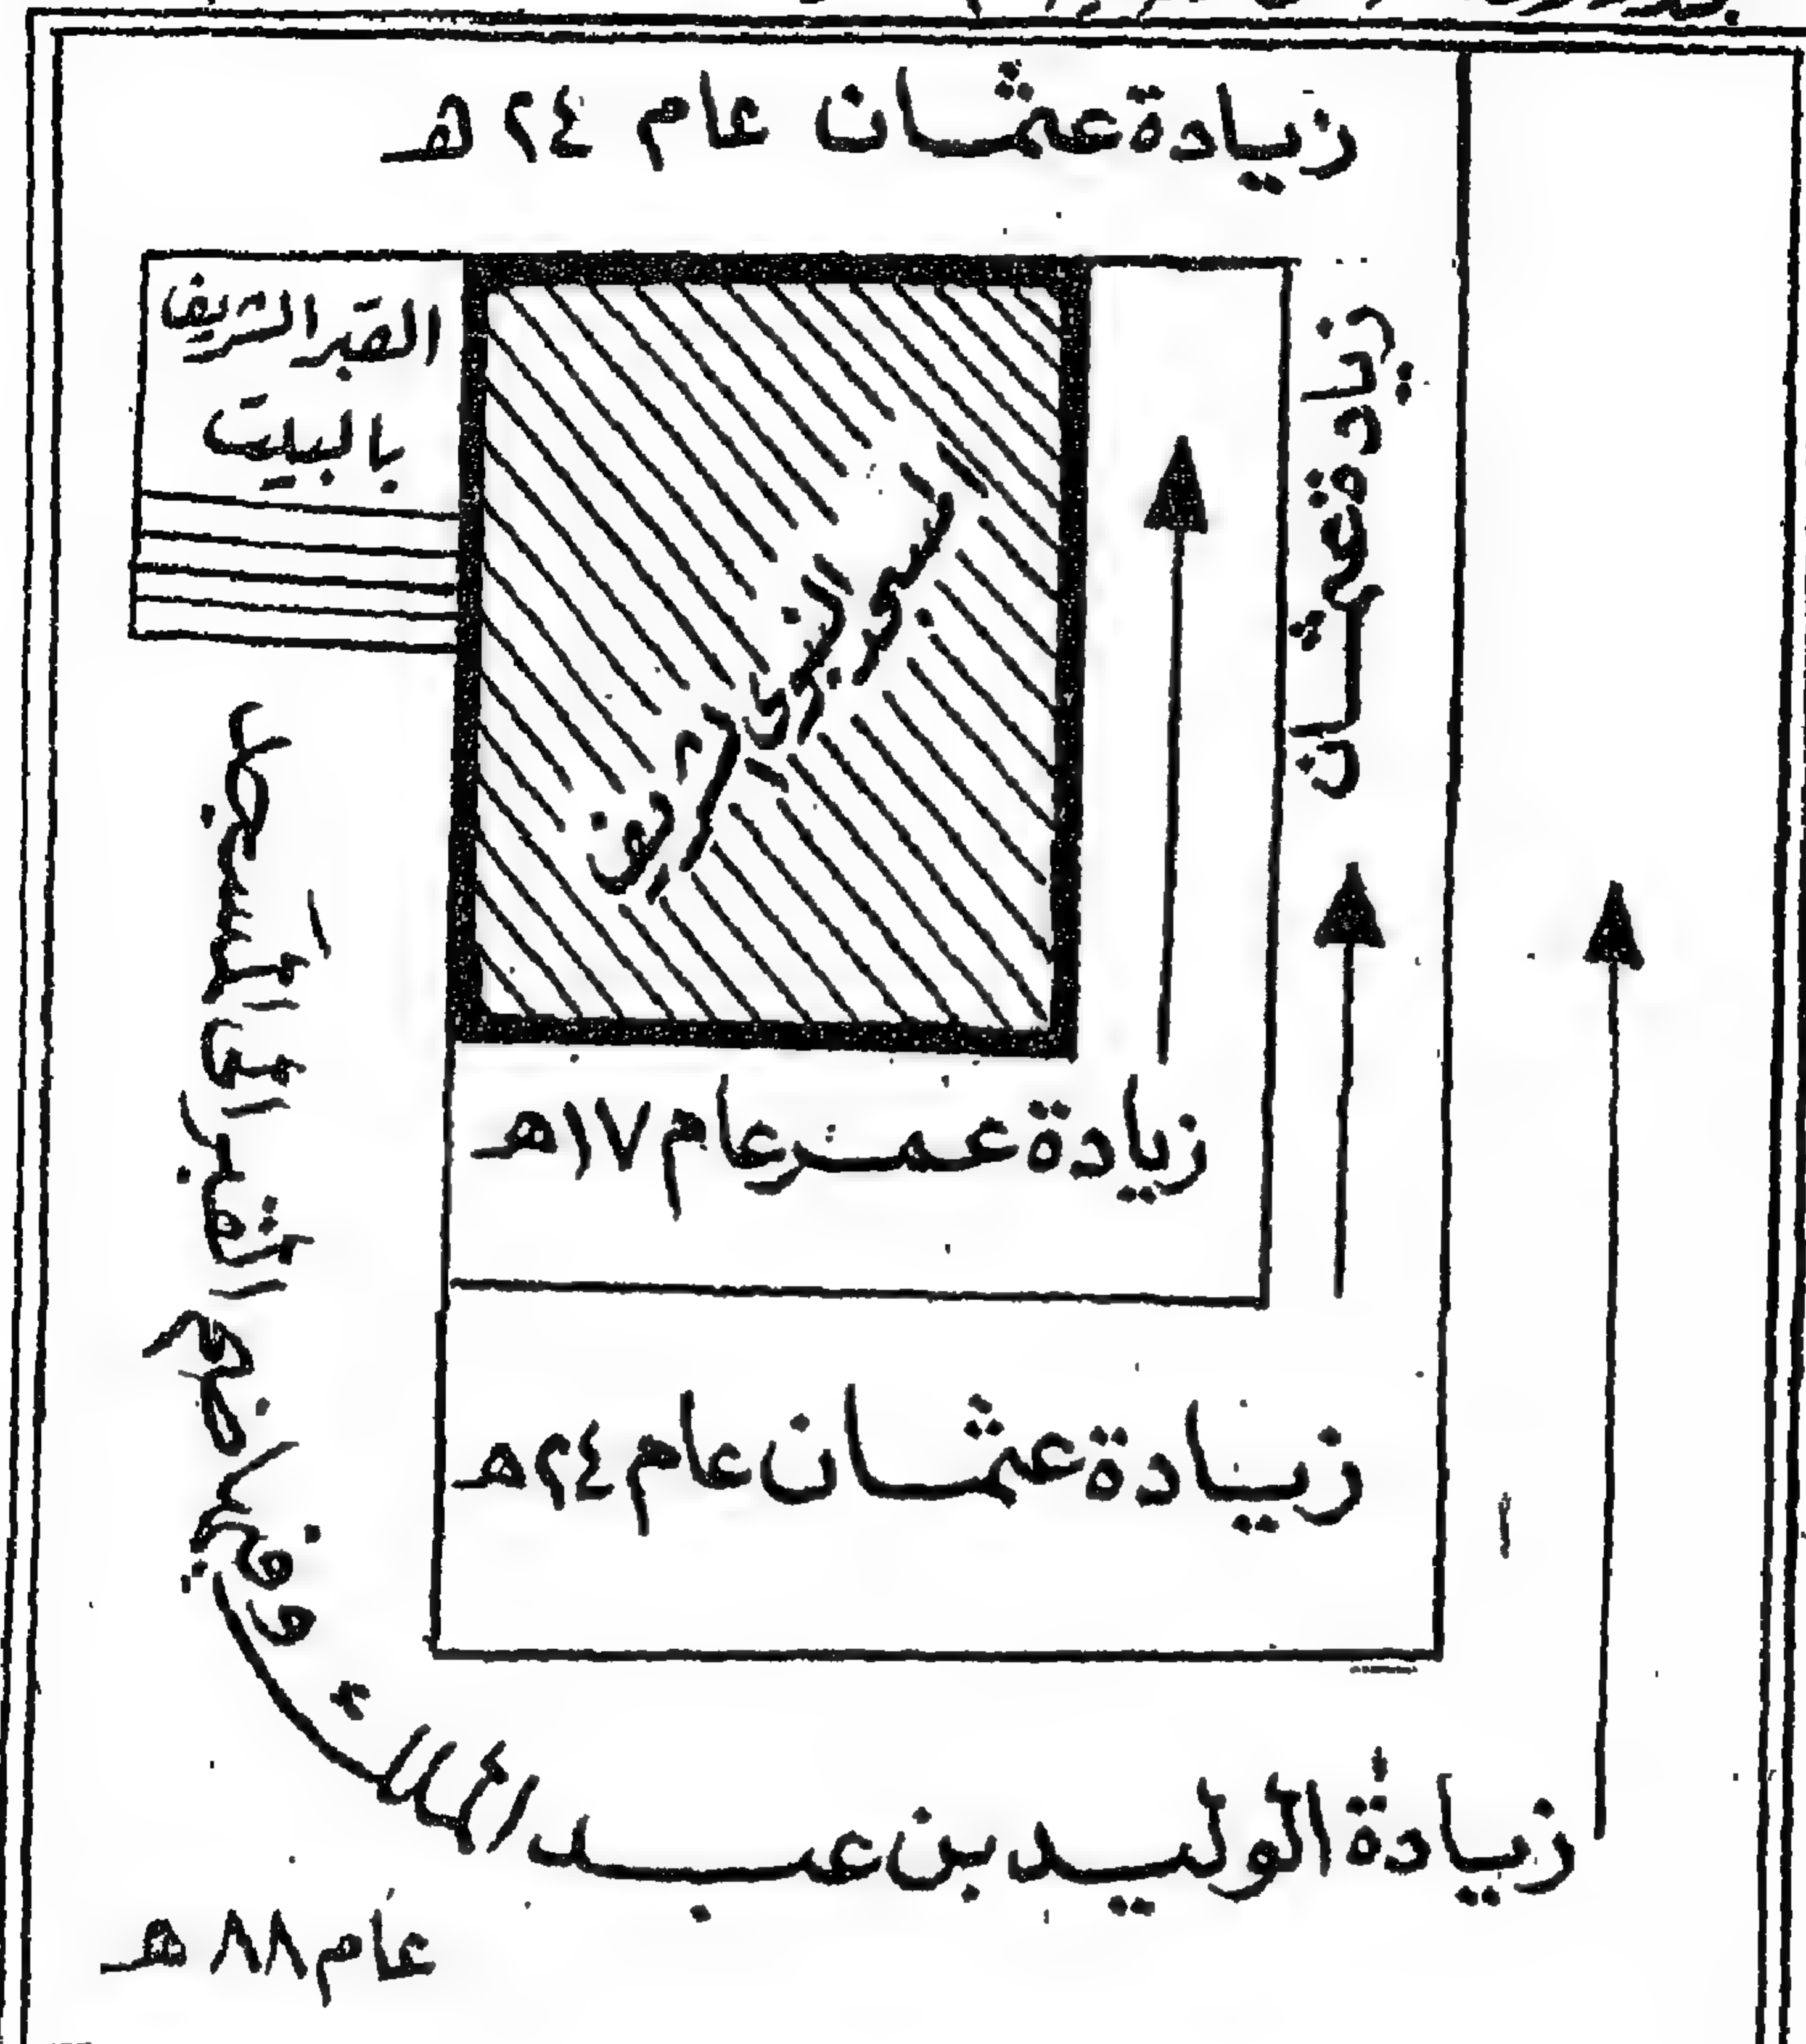 زيادة عثمان عام ٢٤ هـ
القبر الشريف
بالبيت
المسجد النبوي الشريف
زيادة عثمان
زيادة عمر عام ١٧ هـ
زيادة عثمان عام ٢٤ هـ
زيادة الوليد بن عبد الملك وفيها ضم القبر الى المسجد
عام ٨٨ هـ